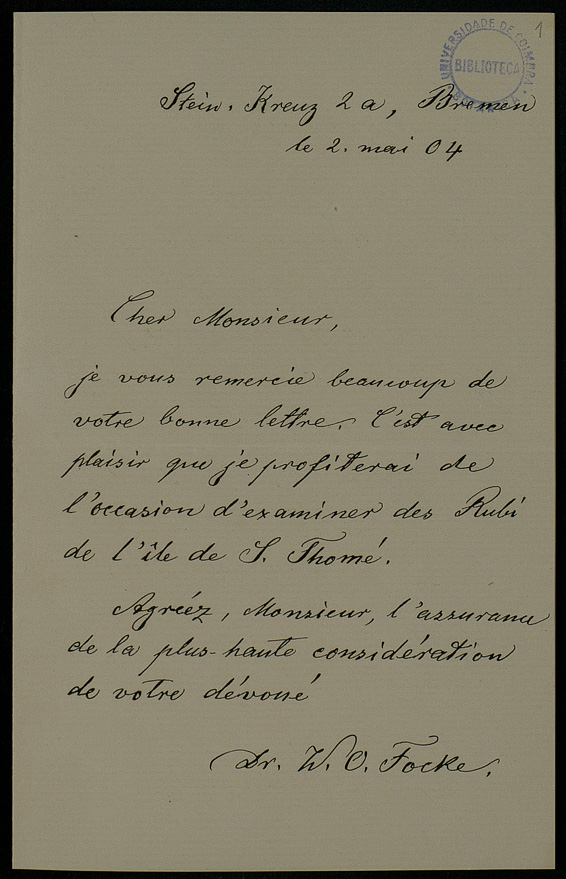 1
UNIVERSIDADE DE COIMBRA
BIBLIOTECA
Stein. Kreuz 2 a, Bremen
le 2. mai 04
Cher Monsieur,
je vous remercie beaucoup de
votre bonne lettre. C'est avec
plaisir que je profiterai de
l'occasion d'examiner des Rubi
de l'île de S. Thomé.
Agréez, Monsieur, l'assurance
de la plus haute considération
de votre dévoué
Dr. W. O. Focke.